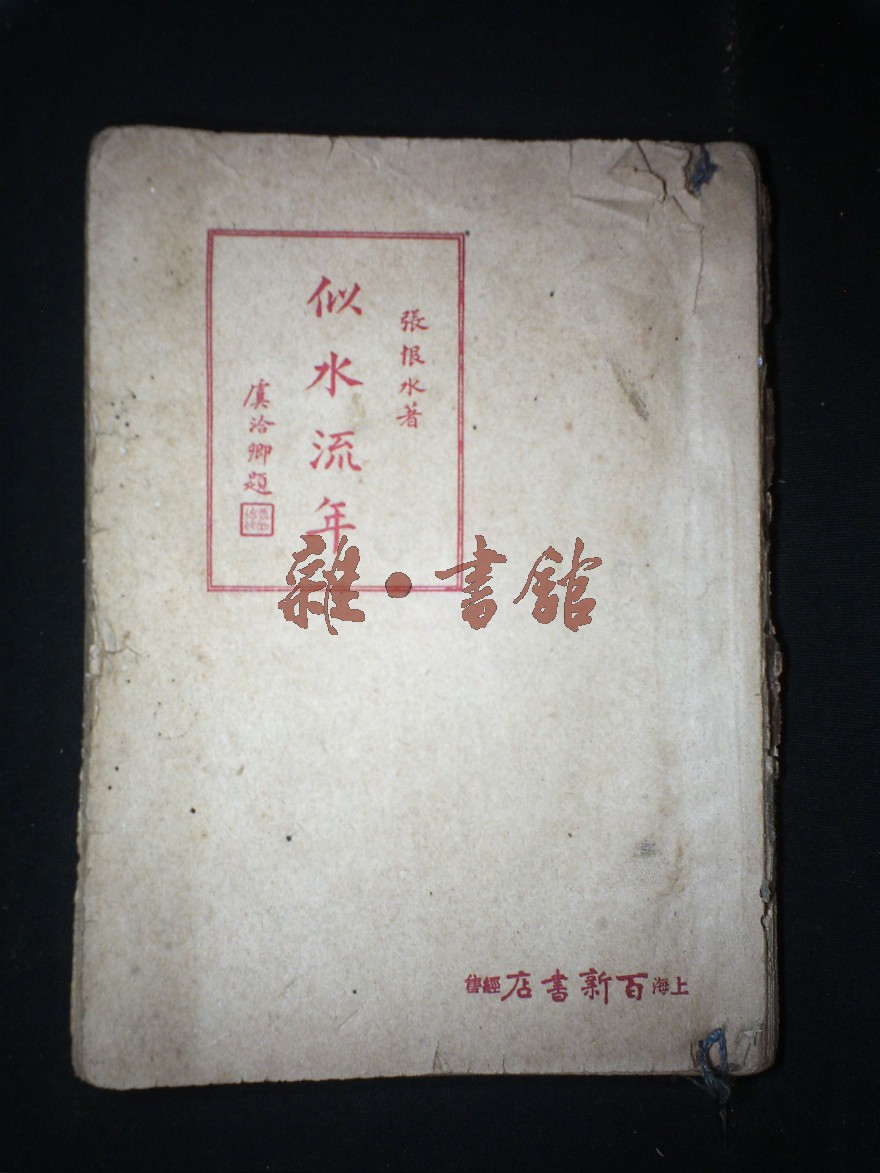 張恨水著
似水流年
虞洽卿題
雜·書舘
上海百新書店經售